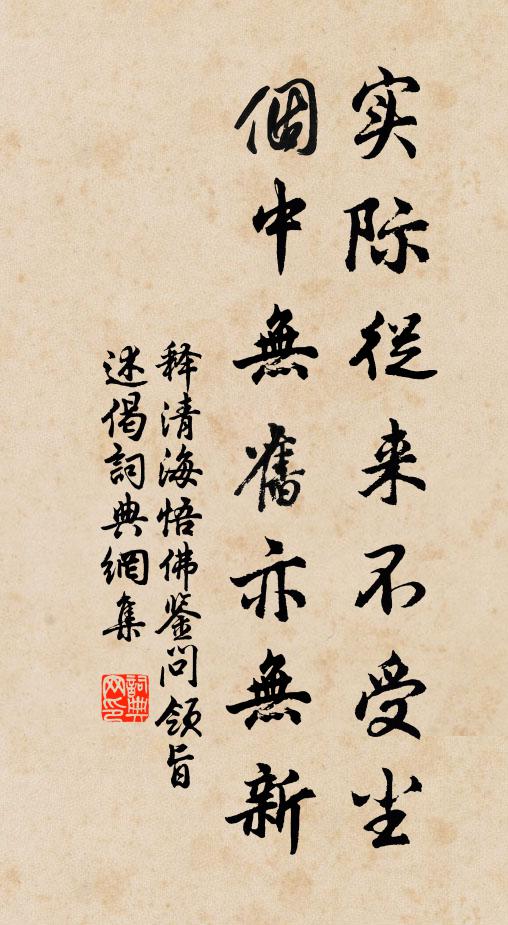 实际從来不受尘
個中無舊亦無新
释清海悟佛鉴问领旨
述偈詞典網集
詞典网印